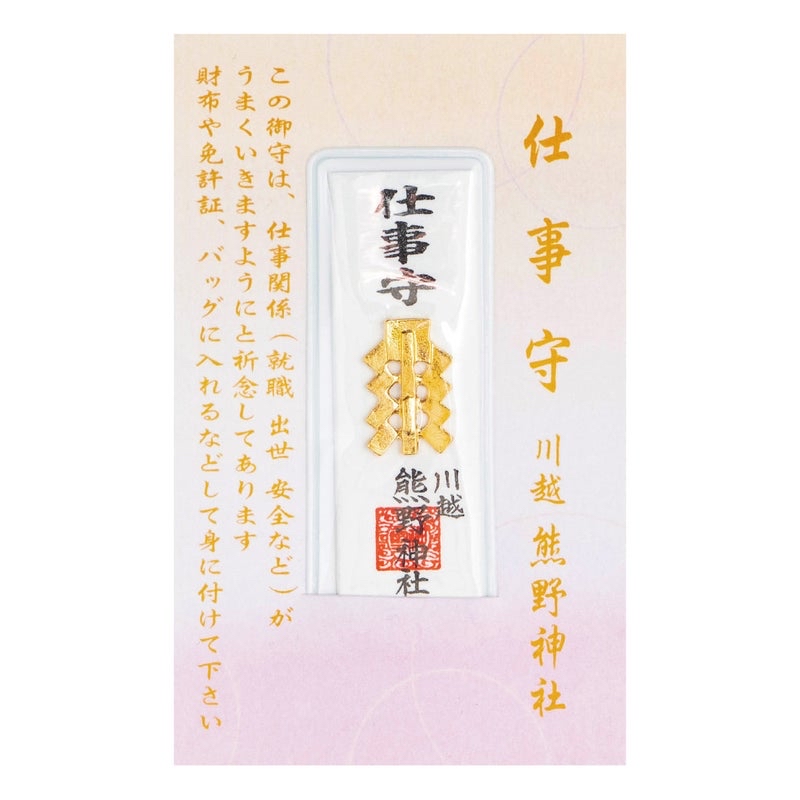 仕事守 川越 熊野神社
仕事守
川越
熊野神社
この御守は、仕事関係(就職 出世 安全など)が
うまくいきますようにと祈念してあります
財布や免許証、バッグに入れるなどして身に付けて下さい